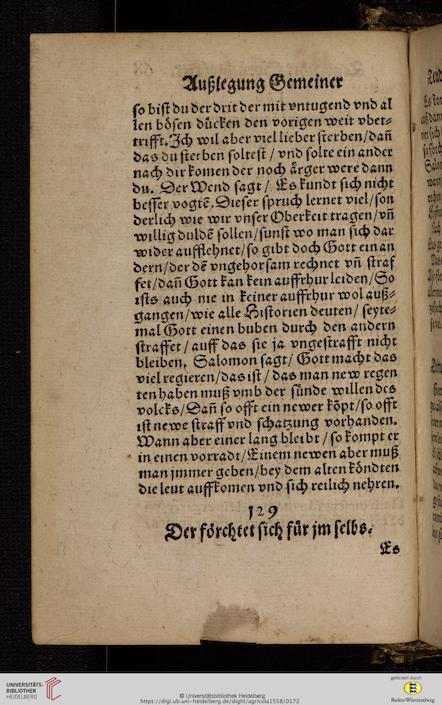 Außlegung Gemeiner
so bist du der drit der mit vntugend vnd al
len bösen dücken den vorigen weit vber⸗
trifft. Ich wil aber viel lieber sterben / dañ
das du sterben soltest / vnd solte ein ander
nach dir komen der noch ärger were dann
du. Der Wend sagt / Es kundt sich nicht
besser vogtẽ. Dieser spruch lernet viel / son
derlich wie wir vnser Oberkeit tragen / vñ
willig duldẽ sollen / sunst wo man sich dar
wider aufflehnet / so gibt doch Gott ein an
dern / der dẽ vngehorsam rechnet vñ straf
fet / dañ Gott kan kein auffrhur leiden / So
ists auch nie in keiner auffrhur wol auß⸗
gangen / wie alle Historien deuten / seyte⸗
mal Gott einen buben durch den andern
straffet / auff das sie ja vngestrafft nicht
bleiben. Salomon sagt / Gott macht das
viel regieren / das ist / das man new regen
ten haben muß vmb der sünde willen des
volcks / Dañ so offt ein newer köpt / so offt
ist newe straff vnd schatzung vorhanden.
Wann aber einer lang bleibt / so kompt er
in einen vorradt / Einem newen aber muß
man jmmer geben / bey dem alten köndten
die leut auffkomen vnd sich reilich nehren.
129
Der förchtet sich für jm selbs.
Es
UNIVERSITÄTS-
BIBLIOTHEK
HEIDELBERG
© Universitätsbibliothek Heidelberg
https://digi.ub.uni-heidelberg.de/diglit/agricola1558/0172
gefördert durch
Baden-Württemberg